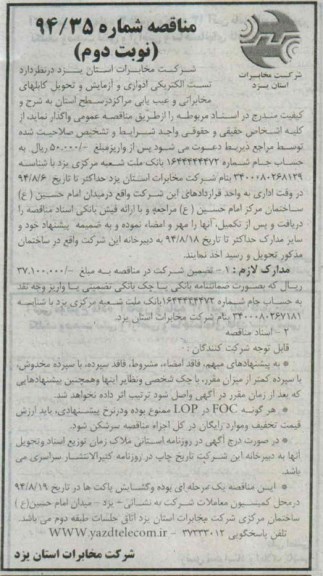 مناقصه شماره ۹۴/۳۵
(نوبت دوم)
شرکت مخابرات
استان یزد
شرکت مخابرات استان یزد درنظردارد
تست الکتریکی ادواری و آزمایش و تحویل کابلهای
مخابراتی و عیب یابی مراکز درسطح استان به شرح و
کیفیت مندرج در اسناد مربوطه را از طریق مناقصه عمومی واگذار نماید، از
کلیه اشخاص حقیقی و حقوقی واجد شرایط و تشخیص صلاحیت شده
توسط مراجع ذیربط دعوت می شود پس از واریز مبلغ -/۵۰،۰۰۰ ریال به
حساب جام شماره ۱۶۴۴۴۴۴۴۷۲ بانک ملت شعبه مرکزی یزد با شناسه
۳۴۰۰۰۸۰۲۶۸۱۲۹ بنام شرکت مخابرات استان یزد حداکثر تا تاریخ ۹۴/۸/۶
در وقت اداری به واحد قراردادهای این شرکت واقع درمیدان امام حسین (ع)
ساختمان مرکز امام حسین (ع) مراجعه و با ارائه فیش بانکی اسناد مناقصه را
دریافت و پس از تکمیل، آنها را مهر و امضاء نموده و به ضمیمه پیشنهاد خود و
سایر مدارک حداکثر تا تاریخ ۹۴/۸/۱۸ به دبیرخانه این شرکت واقع در ساختمان
مذکور تحویل و رسید اخذ نمایند.
مدارک لازم : ۱- تضمین شرکت در مناقصه به مبلغ -/۳۷،۱۰۰،۰۰۰
ریال که بصورت ضمانتنامه بانکی یا چک بانکی تضمینی یا واریز وجه نقد
به حساب جام شماره ۱۶۴۴۴۴۴۴۷۲ بانک ملت شعبه مرکزی یزد با شناسه
۳۴۰۰۰۸۰۲۶۷۱۸۱ بنام شرکت مخابرات استان یزد.
۲ - اسناد مناقصه
قابل توجه شرکت کنندگان :
● به پیشنهادهای مبهم، فاقد امضاء، مشروط، فاقد سپرده، با سپرده مخدوش،
با سپرده کمتر از میزان مقرر، با چک شخصی ونظایر اینها وهمچنین پیشنهادهایی
که بعد از زمان مقرر در آگهی واصل شود ترتیب اثر داده نخواهد شد.
● هر گونه FOC در LOP ممنوع بوده ودرنرخ پیشنهادی، باید ارزش
قیمت تخفیف وموارد رایگان در کل اجزاء مناقصه سرشکن شود.
● در صورت درج آگهی در روزنامه استانی ملاک زمان توزیع اسناد وتحویل
آنها به دبیرخانه این شرکت تاریخ چاپ در روزنامه کثیرالانتشار سراسری می
باشد.
● ایـن مناقصه یک مرحله ای بوده وگشایش پاکت ها در تاریخ ۹۴/۸/۱۹
درمحل کمیسیون معاملات شرکت به نشانی - یزد - میدان امام حسین(ع)
ساختمان مرکزی شرکت مخابرات استان یزد اتاق جلسات طبقه دوم می باشد.
تلفن پاسخگویی ۳۷۲۳۳۰۱۲ - WWW.yazdtelecom.ir
شرکت مخابرات استان یزد